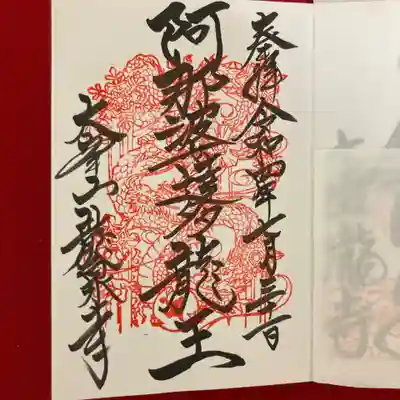 奉拝 令和四年 月三日
阿那婆達多龍王
大峯山龍泉寺